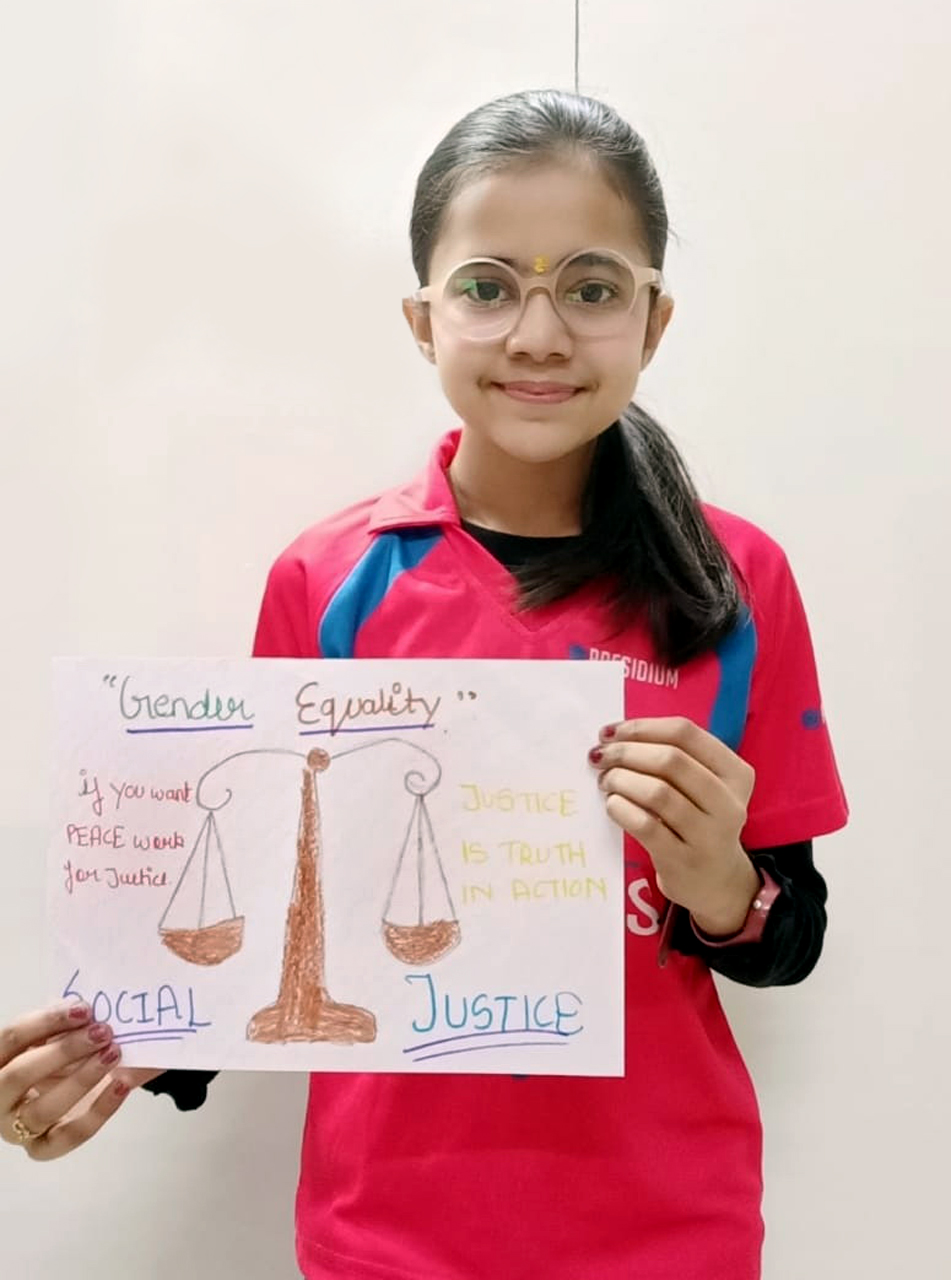 PRESIDIUM
"Gender Equality"
if you want
PEACE work
for Justice.
JUSTICE
IS TRUTH
IN ACTION
S
SOCIAL JUSTICE